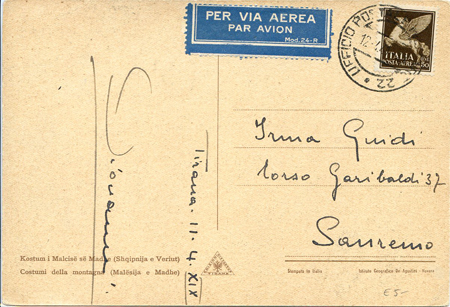 PER VIA AEREA
PAR AVION
Mod. 24-R
UFFICIO POST
22
ITALIA
POSTA AEREA
50
Irma Guidi
Corso Garibaldi 37
Sanremo
Tirana. 11. 4. XIX
Giovanni
Kostum i Malcisë së Madhe (Shqipnija e Veriut)
Costumi della montagna (Malësija e Madhe)
Stampato in Italia
Istituto Geografico De Agostini - Novara
£5-